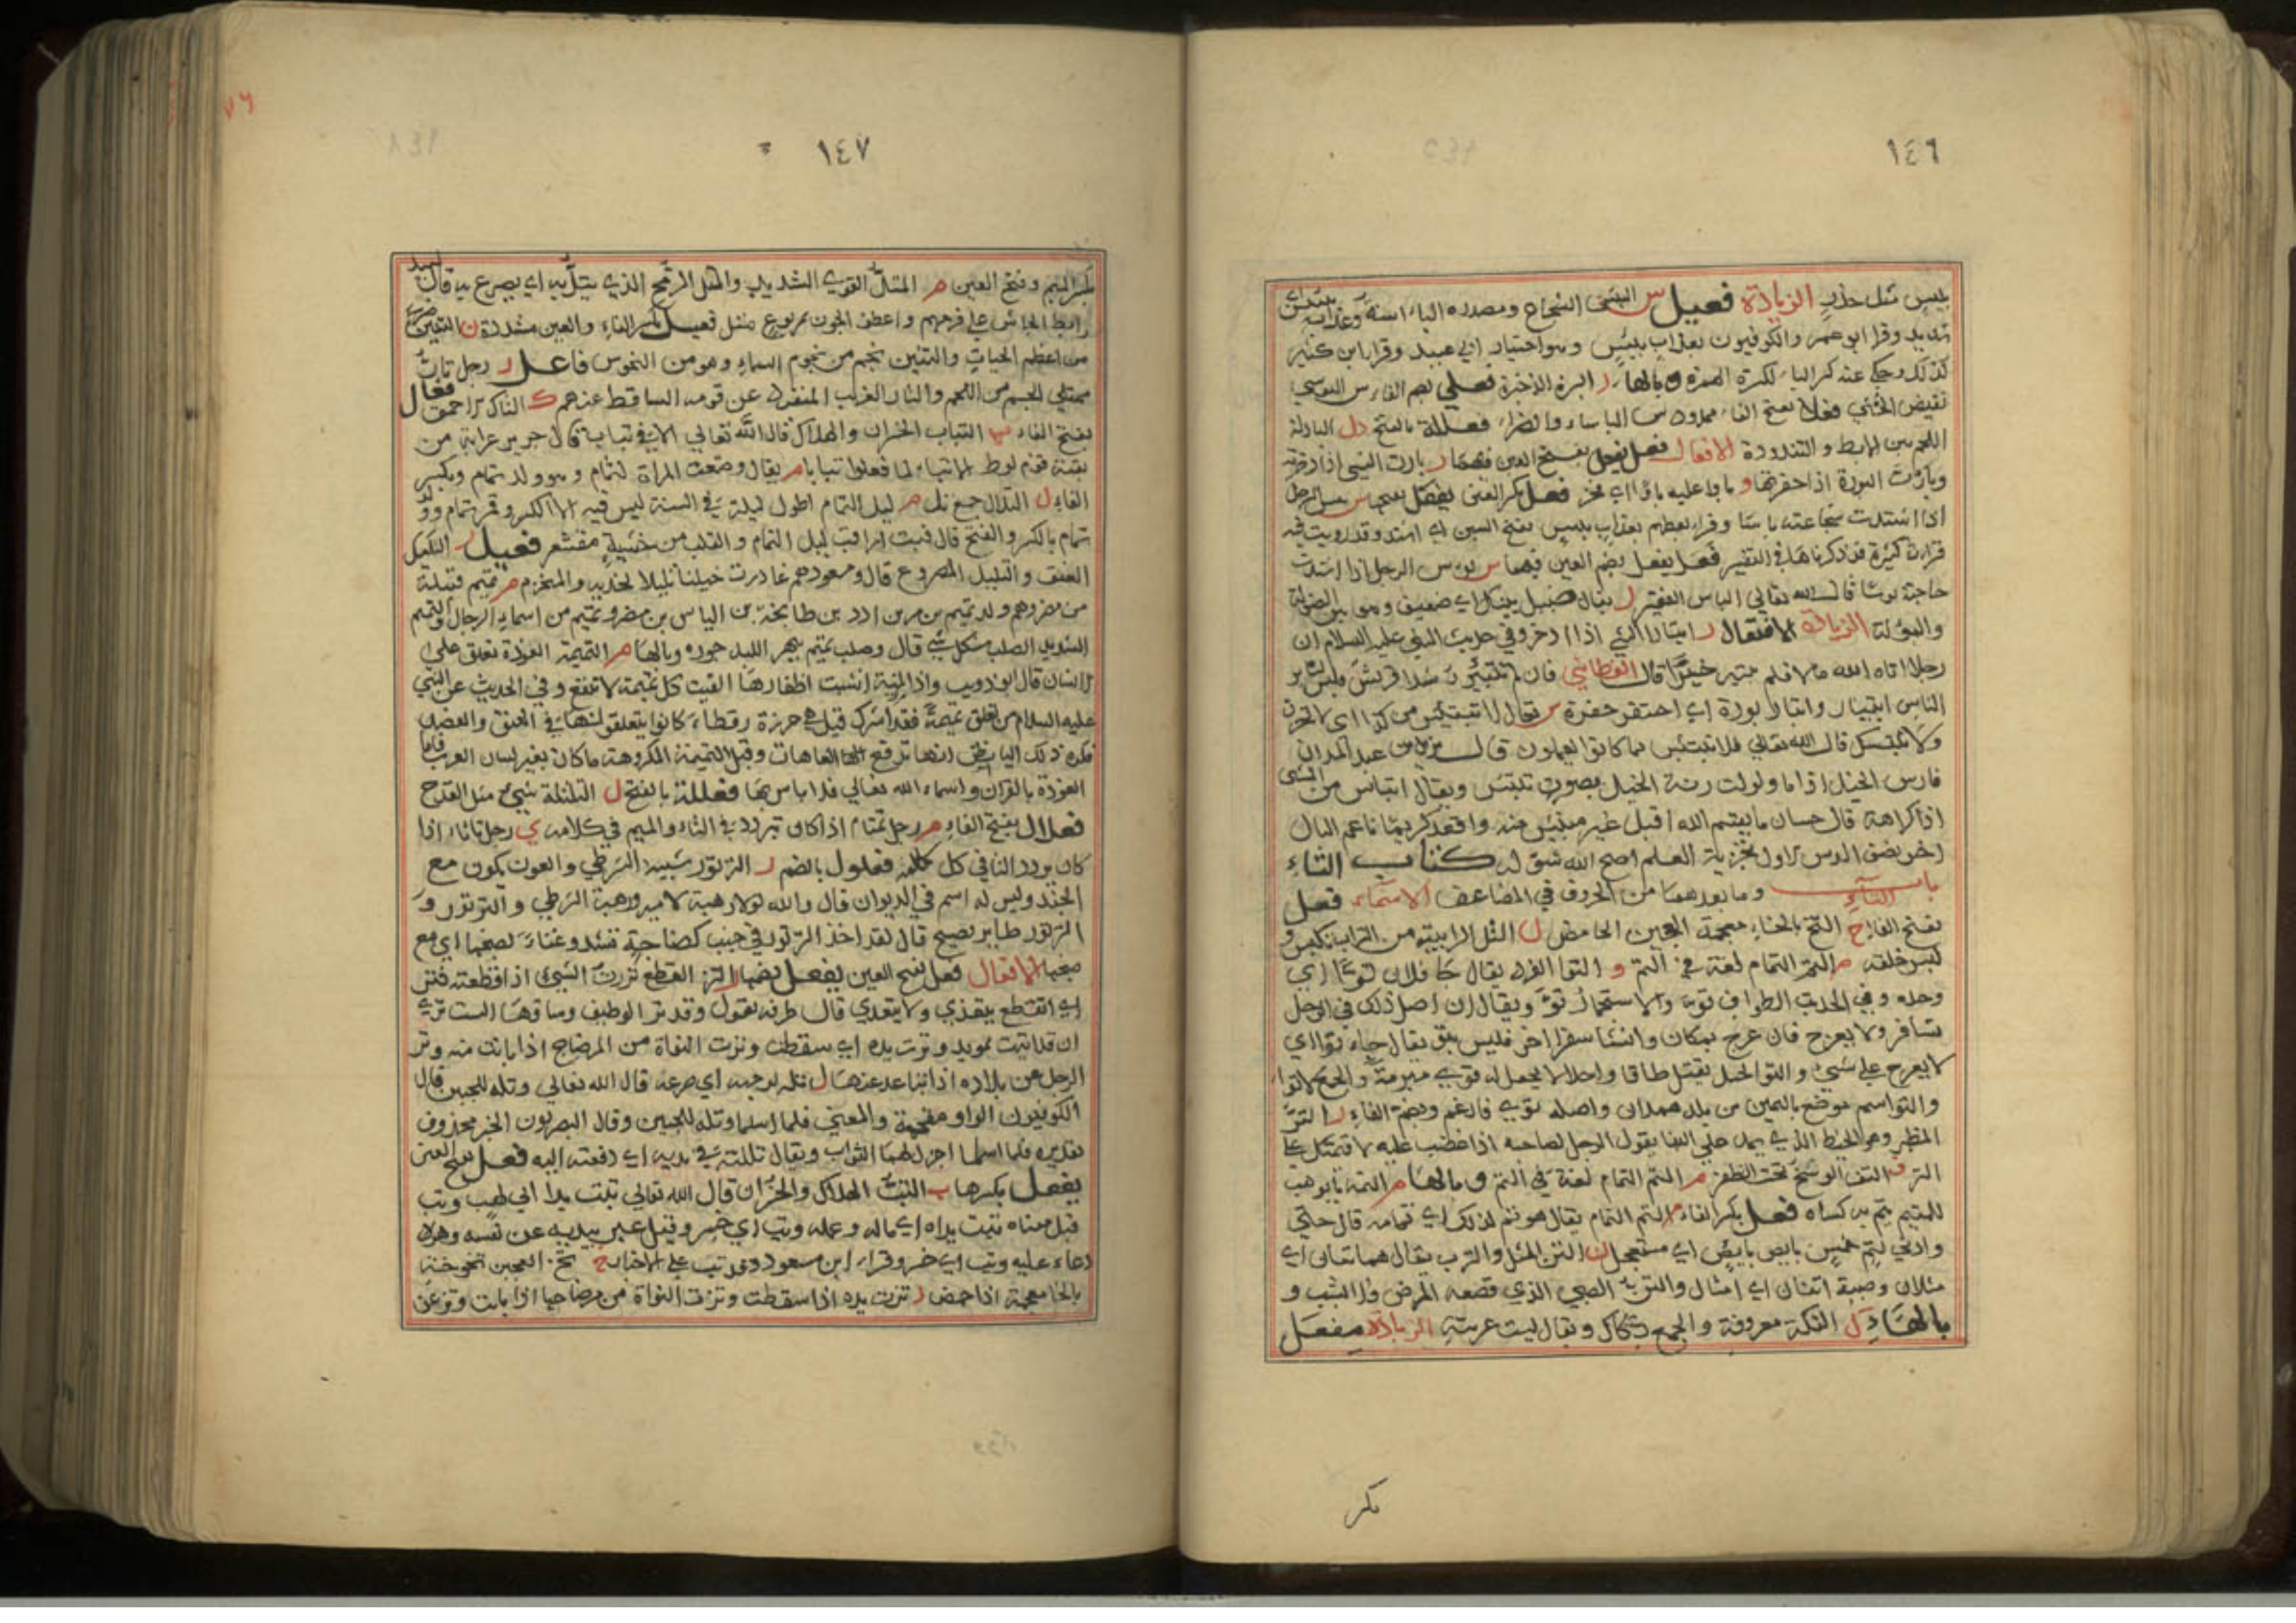 ١٤٦
بئيس مثل حذر الزيادة فعيل س البئيس الشجاع ومصدره الباساء وعذاب بئيس اي
شديد وقرا ابو عمر والكوفيون بعذاب بئيس وهو اختيار ابي عبيد وقرا ابن كثير
كذلك وحكي عنه كسر الباء لكسرة الهمزة و بالهاء ر البئرة الذخيرة فعلى بضم الفاء س البوسى
نقيض النعمى فعلاء بفتح الفاء ممدود س الباساء والضراء فعللة بالفتح دل البادلة
اللحم بين الابط والثندوة الافعال فعل يفعل بفتح العين فيهما ر بارت الشيء اذا دخرته
وبارت البورة اذا حفرتها و باوا عليه باوا اي فخر فعل بكسر العين يفعل بفتحها س بئس الرجل
اذا اشتدت شجاعته باسا وقرا بعضهم بعذاب بئيس بفتح السين اي اشتد وقد رويت فيه
قراءات كثيرة قد ذكرناها في التفسير فعل يفعل بضم العين فيهما س بوس الرجل اذا اشتدت
حاجته بوسا قال الله تعالى البائس الفقير ل يقال ضئيل بئيل اي ضعيف وهو بين الضولة
والبولة الزيادة الافتعال ر ابتار الشيء اذا ادخره وفي حديث النبي عليه السلام ان
رجلا اتاه الله مالا فلم يبتئر خيرا قال القطامي فان لم تبتئر رشدا قريش فليس لسائر
الناس ابتيار وابتار بورة اي احتفر حفرة س تقال لا تبتئس من كذا اي لا تحزن
ولا تبتئس قال الله تعالى فلا تبتئس بما كانوا يعملون قال يزيد بن عبد المدان
فارس الخيل اذا ما ولولت رنة الخيل بصوت تبتئس ويقال ابتاس من الشيء
اذا كراهة قال حسان ما يقسم الله اقبل غير مبتئس منه واقعد كريما ناعم البال
كتاب التاء
باب التاء وما بعدهما من الحروف في المضاعف الاسماء فعل
بفتح الفاء خ التخ بالخاء معجمة العجين الحامض ل التل الرابية من التراب تكبس و
ليس خلقة م التم التمام لغة في التم و التوا الفرد يقال جا فلان توا اي
وحده وفي الحديث الطواف تو والاستجمار تو ويقال ان اصل ذلك في الرجل
يسافر ولا يعرج فان عرج بمكان وانشا سفرا اخر فليس بتو يقال جاء توا اي
لا يعرج على شيء والتو الحبل يفتل طاقا واحدا لا يجعل له قوي مبرمة والجمع الاتوا
والتو اسم موضع باليمن من بلد همدان واصله توي فادغم وبضم الفاء ر التر
المطمر وهو الخيط الذي يمد على البنا يقول الرجل لصاحبه اذا غضب عليه لاقيمنك على
التر ف التف الوسخ تحت الظفر م التم التمام لغة في التم و بالهاء م التمة ما يوهب
للمتيم يتم به كساه فعل بكسر الفاء م التم التمام يقال هو تم لذلك اي تمامه قال حتى
وادني لتم خمس بايص بايص اي مستعجل ن التن المثل والترب يقال هما تنان اي
مثلان وصبية اتنان اي امثال والتن الصبي الذي قصعه المرض فلا يشب و
بالهاء ك التكة معروفة والجمع تكك ويقال ليست عربية الزيادة مفعل
تكر
١٤٧
بكسر الميم وفتح العين م المتل القوي الشديد والمتل الرمح الذي يتل به اي يصرع به قال لبيد
رابط الجاش على فرجهم واعطف الجون بمربوع متل فعيل بكسر الفاء والعين مشددة ن التنين ضرب
من اعظم الحيات والتنين نجم من نجوم السماء وهو من النحوس فاعل ر رجل تار
ممتلي الجسم من اللحم والتار الغريب المنفرد عن قومه الساقط عندهم ك التاك احمق فعال
بفتح الفاء ب التباب الخسران والهلاك قال الله تعالى الا في تباب قال جرير عرابة من
بقية قوم لوط الا تبا لما فعلوا تبابا م يقال وضعت المراة لتمام وهو ولد تمام وبكسر
الفاء ل التلال جمع تل م ليل التمام اطول ليلة في السنة ليس فيه الا الكسر وقمر تمام وولد
تمام بالكسر والفتح قال فبت اراقب ليل التمام والقلب من خشية مقشعر فعيل ل التليل
العنق والتليل المصروع قال ومسعودهم غادرت خيلنا تليلا لخديه والمنخرم م تميم قبيلة
من مضر وهم ولد تميم بن مر بن ادد بن طابخة بن الياس بن مضر وتميم من اسماء الرجال والتميم
الشديد الصلب من كل شيء قال وصلب تميم يبهر اللبد جوزه وبالهاء م التميمة العوذة تعلق على
الانسان قال ابو ذويب واذا المنية انشبت اظفارها الفيت كل تميمة لا تنفع وفي الحديث عن النبي
عليه السلام من تعلق تميمة فقد اشرك قيل هي خرزة رقطاء كانوا يتعلقونها في العنق والعضد
فكره ذلك اليا يظن انها ترفع العاهات وقيل التميمة المكروهة ما كان بغير لسان العرب فاما
العوذة بالقران واسماء الله تعالى فلا باس بها فعللة بالفتح ل التلتلة شيء مثل القدح
فعلال بفتح الفاء م رجل تمتام اذا كان تيردد في التاء والميم في كلامه ي رجل تاتاء اذا
كان يردد التا في كل كلمة فعلول بالضم ر الترتور شبيه الشرطي والعون يكون مع
الجند وليس له اسم في الديوان قال والله لولا رهبة الامير ورهبة الشرطي والترتور و
الترتور طاير يصيح قال لقد اخذ الترتور في جنب
صبغها الافعال فعل بفتح العين يفعل بضمها ر التر القطع تررت الشيء اذا قطعته فتر
اي انقطع يتعدي ولا يتعدي قال طرفة يقول وقد تر الوظيف وساقها الست تري
ان قد اتيت بمويد وترت يده اي سقطت وترت النواة من المرضاح اذا بانت منه وتر
الرجل عن بلاده اذا تباعد عنها ل تله لوجهه اي صرعه قال الله تعالى وتله للجبين قال
الكوفيون الواو مقحمة والمعنى فلما اسلما وتله للجبين وقال البصريون الخبر محذوف
تقديره فلما اسلما اجزل لهما الثواب ويقال تللته في يديه اي دفعته اليه فعل بفتح العين
يفعل بكسرها ب التب الهلاك والخسران قال الله تعالى تبت يدا ابي لهب وتب
قيل معناه تبت يداه اي ماله وعمله وتب اي خسر وقيل عبر بيديه عن نفسه وهو
دعاء عليه وتب اي خسر وقراءة ابن مسعود وقد تب على الاخبار خ تخ العجين تخوخة
بالخا معجمة اذا حمض ر ترت يده اذا سقطت وترت النواة من مرضاحها اذا بانت وتر عن